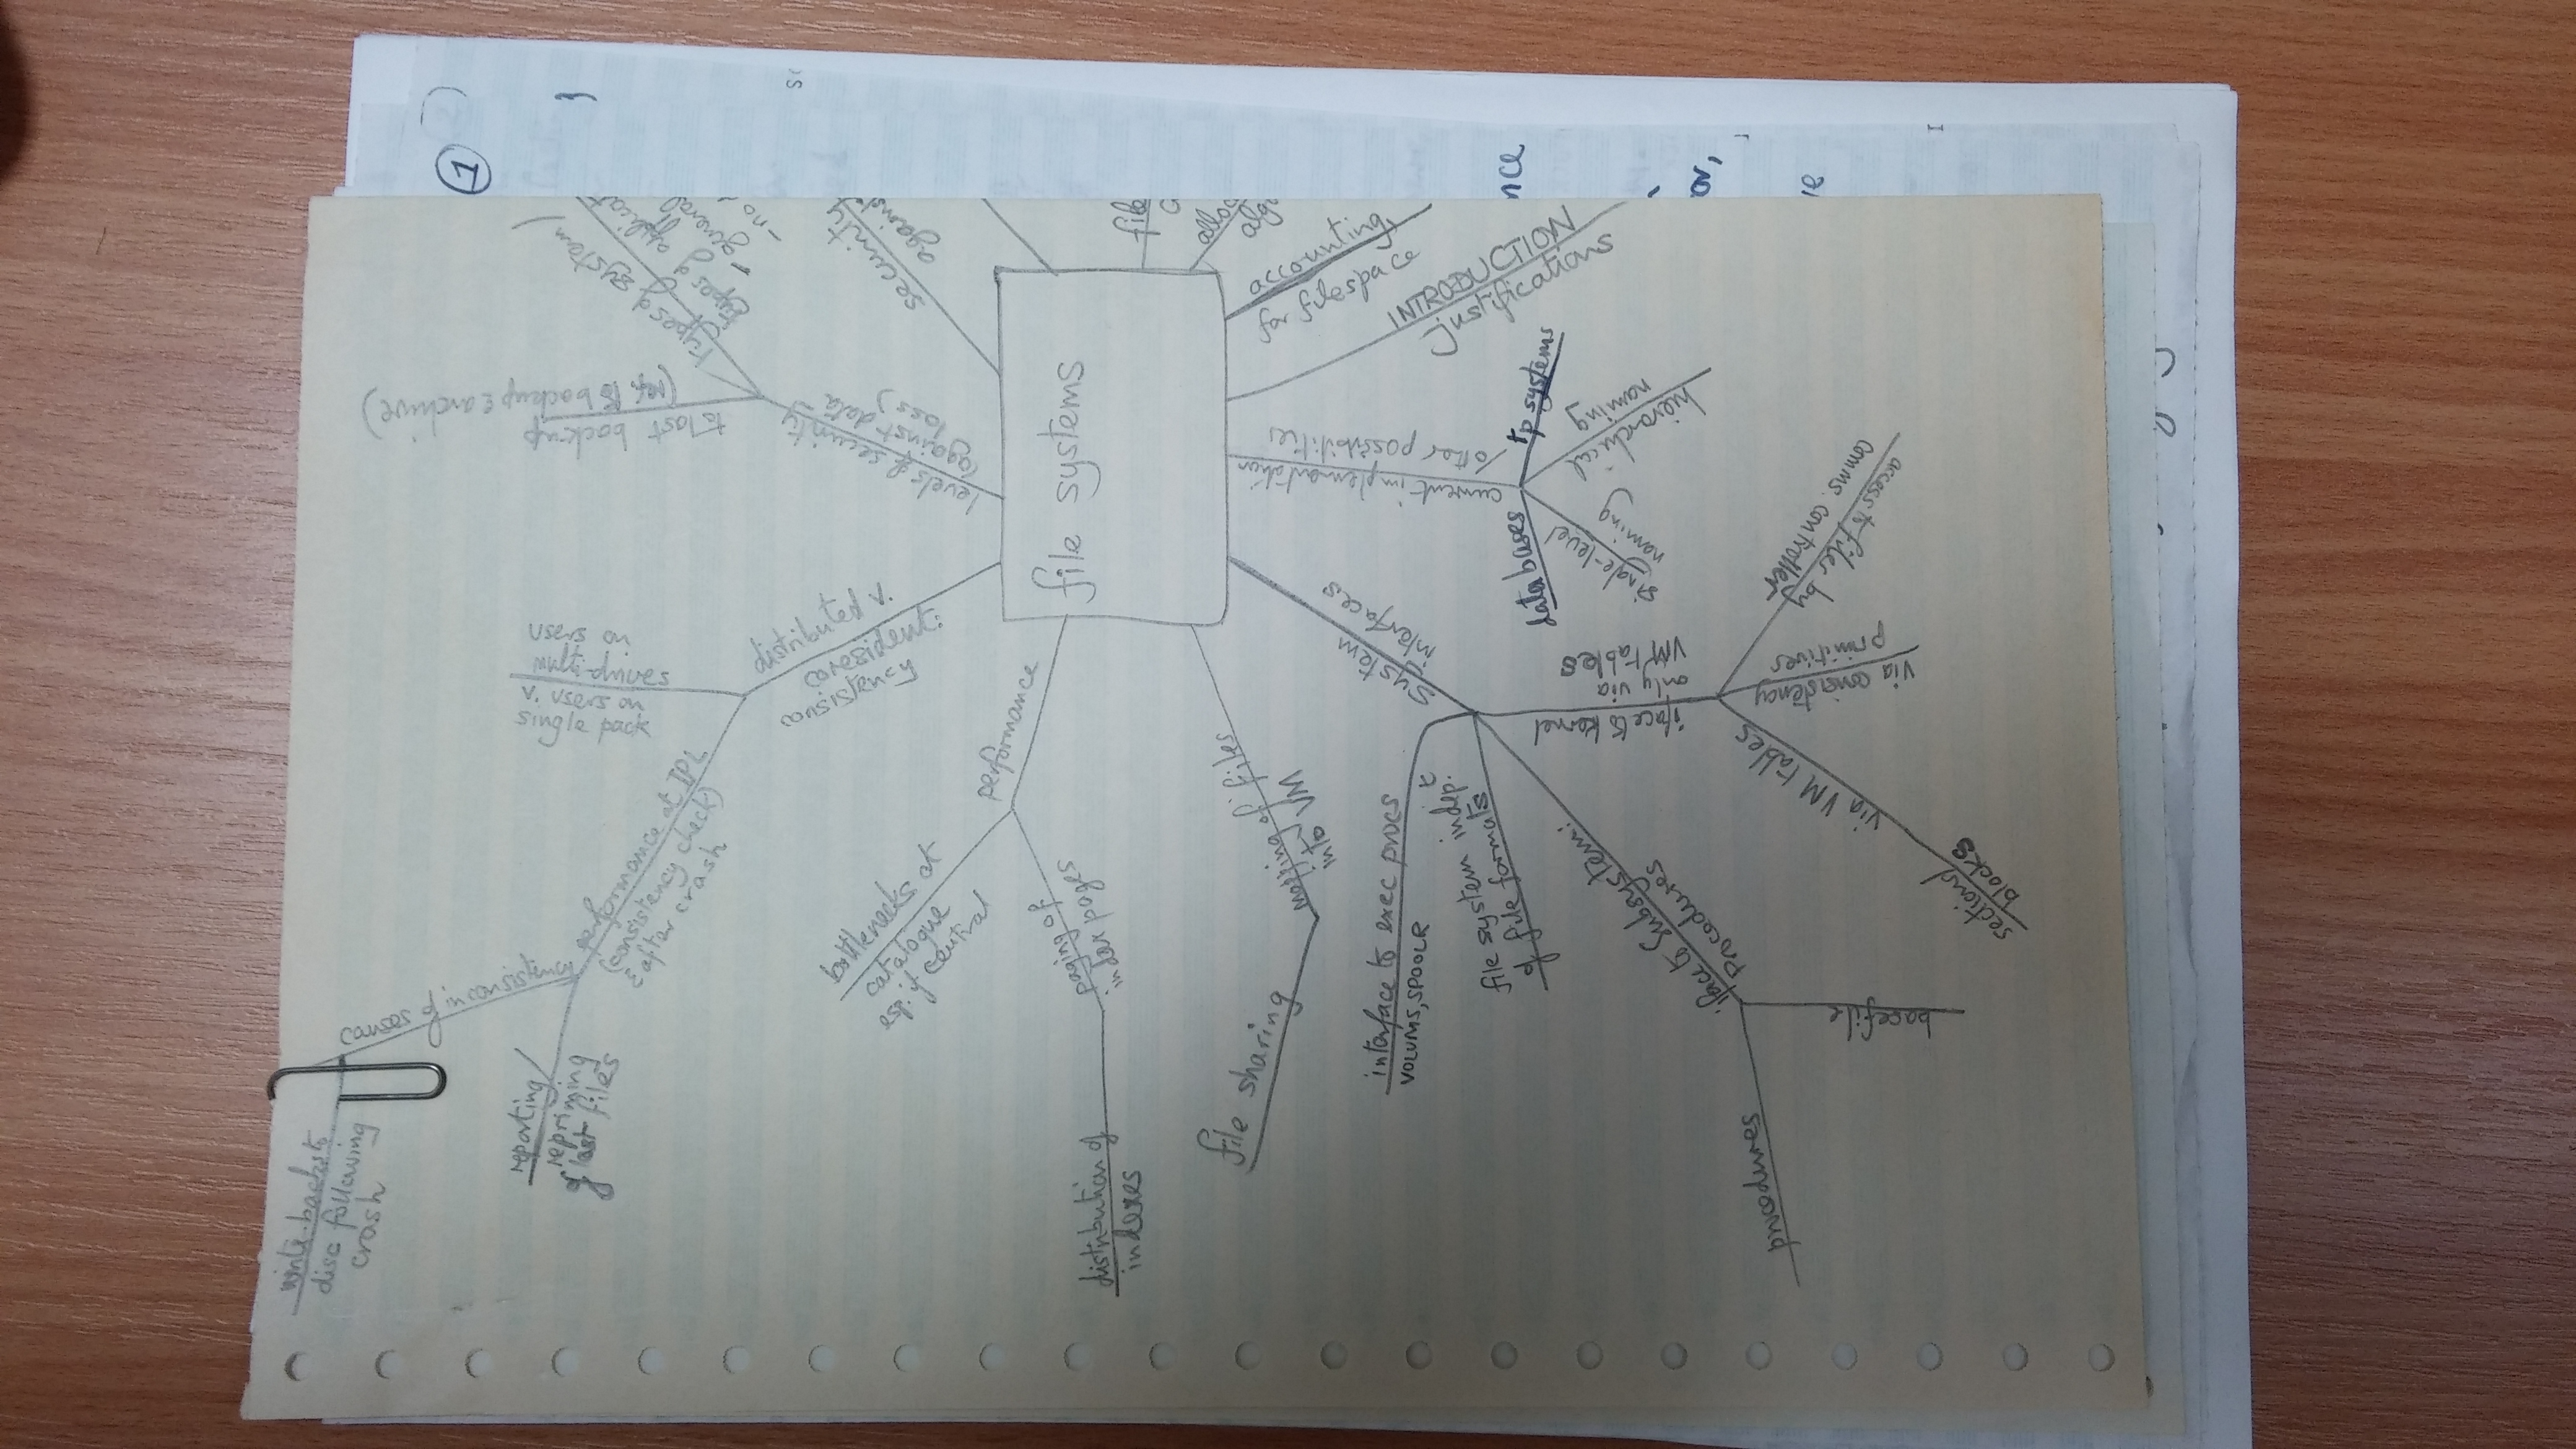 file systems
INTRODUCTION
justifications
accounting
for filespace
file
security
against
levels of security
(against data
loss)
to last backup
(ref. to backup & archive)
types of system
types of
general
- no
distributed v.
coresident:
consistency
users on
multi-drives
v. users on
single pack
performance at IPL
(consistency check)
& after crash
causes of inconsistency
write-back to
disc following
crash
reporting/
repriming
of last files
performance
bottlenecks at
catalogue
esp. if central
paging of
index pages
distribution of
indexes
mapping of files
into VM
file sharing
system
interfaces
interface to exec procs
VOLUMS, SPOOLR
file system indep.
of file formats
iface to Subsystem:
procedures
basefile
iface to kernel
only via
VM tables
access to files by
comms. controller
via consistency
primitives
via VM tables
sections/
blocks
current implementation
/other possibilities
databases
tp systems
hierarchical
naming
single-level
naming
1
nce
or,